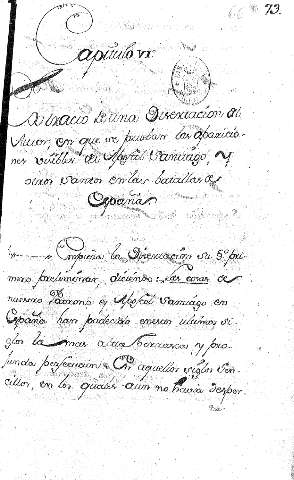 73.
Capitulo VI.
Extracto de una Disertacion del
Autor, en que se prueban las aparicio-
nes visibles del Apostol Santiago, y
otros Santos en las batallas de
España.
Empieza la Disertacion su §º pri-
mero preliminar, diciendo: las cosas de
nuestro Patrono el Apostol Santiago en
España han padecido en estos ultimos si-
glos la mas alta borrasca, y pro-
funda persecucion. En aquellos siglos sen-
cillos, en los quales aun no havia desper-